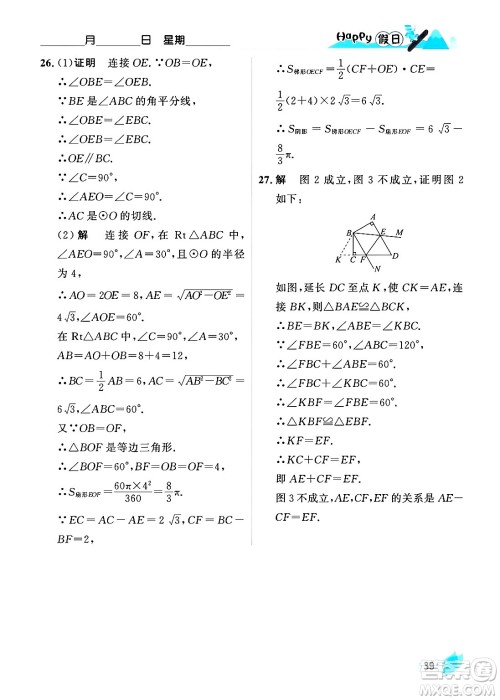 月 日 星期
Happy 假日
26. (1)证明 连接 OE. ∵OB=OE,
∴∠OBE=∠OEB.
∵BE 是∠ABC 的角平分线,
∴∠OEB=∠EBC.
∴OE∥BC.
∵∠C=90°,
∴∠AEO=∠C=90°.
∴AC 是⊙O 的切线.
(2)解 连接 OF,在 Rt△ABC 中,
∠AEO=90°,且⊙O 的半径
为 4,
∴AO=2OE=8, AE=√(AO²-OE²)=
4√3,∠AOE=60°.
在 Rt△ABC 中,∠C=90°,
AB=AO+OB=8+4=12.
∴BC=1/2 AB=6, AC=√(AB²-BC²)=
6√3,∠ABC=60°.
又∵OB=OF,
∴△BOF 是等边三角形.
∴∠BOF=60°,BF=OB=OF=4.
∴S扇形EOF=60π×4²/360=8/3 π.
∵EC=AC-AE=2√3, CF=BC-
BF=2,
∴S梯形OECF=1/2(CF+OE)·CE=
1/2(2+4)×2√3=6√3.
∴S阴影=S梯形OECF-S扇形EOF=6√3-
8/3 π.
27. 解 图 2 成立,图 3 不成立,证明图 2
如下:
A
B
E
M
K
C
F
D
N
如图,延长 DC 至点 K,使 CK=AE,连
接 BK,则△BAE≌△BCK,
∴BE=BK,∠ABE=∠KBC.
∵∠FBE=60°,∠ABC=120°,
∴∠FBC+∠ABE=60°.
∴∠FBC+∠KBC=60°.
∴∠KBF=∠FBE=60°.
∴△KBF≌△EBF.
∴KF=EF.
∴KC+CF=EF.
即 AE+CF=EF.
图 3 不成立,AE,CF,EF 的关系是 AE-
CF=EF.